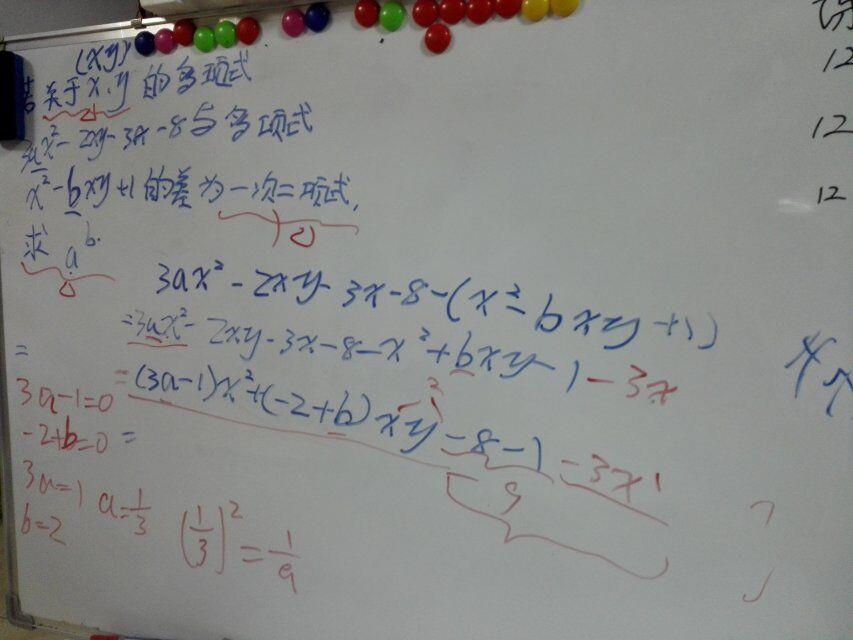 (xy)
若关于x.y的多项式
3ax²-2xy-3x-8与多项式
x²-bxy+1的差为一次二项式,
求a^b.
3ax²-2xy-3x-8-(x²-bxy+1)
=3ax²-2xy-3x-8-x²+bxy-1-3x
=(3a-1)x²+(-2+b)xy-8-1-3x
=
3a-1=0
-2+b=0
=
3a=1
a=1/3
b=2
(1/3)²=1/9
9
12
12
12